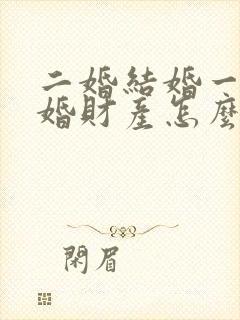 二婚結婚一
婚財產怎麼
閑眉